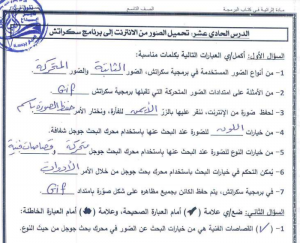 مادة إثرائية في كتاب البرمجة
الصف التاسع
الدرس الحادي عشر: تحميل الصور من الانترنت إلى برنامج سكراتش
السؤال الأول: أكمل/ي العبارات التالية بكلمات مناسبة:
1- من أنواع الصور المستخدمة في برمجية سكراتش، الصور الثابتة والصور المتحركة
2- من الأمثلة على امتدادات الصور المتحركة التي تقبلها برمجية سكراتش Gif
3- لحفظ صورة من الإنترنت، ننقر عليها بالزر الأيمن للفأرة، ونختار الأمر حفظ الصورة باسم
4- من خيارات اللون للصورة عند البحث عنها باستخدام محرك البحث جوجل شفافة.
5- من خيارات النوع للصورة عند البحث عنها باستخدام محرك البحث جوجل متحركة وقصاصات فنية
6- يمكن التحكم في خيارات البحث باستخدام محرك البحث جوجل من خلال الأمر الأدوات
7- في برمجية سكراتش، يتم حفظ الكائن بجميع مظاهره على شكل صورة بامتداد Gif
السؤال الثاني: ضع/ي علامة (✓) أمام العبارة الصحيحة، وعلامة (✗) أمام العبارة الخاطئة:
1- (✓) القصاصات الفنية هي من خيارات البحث عن الصور في محرك البحث جوجل من حيث النوع.